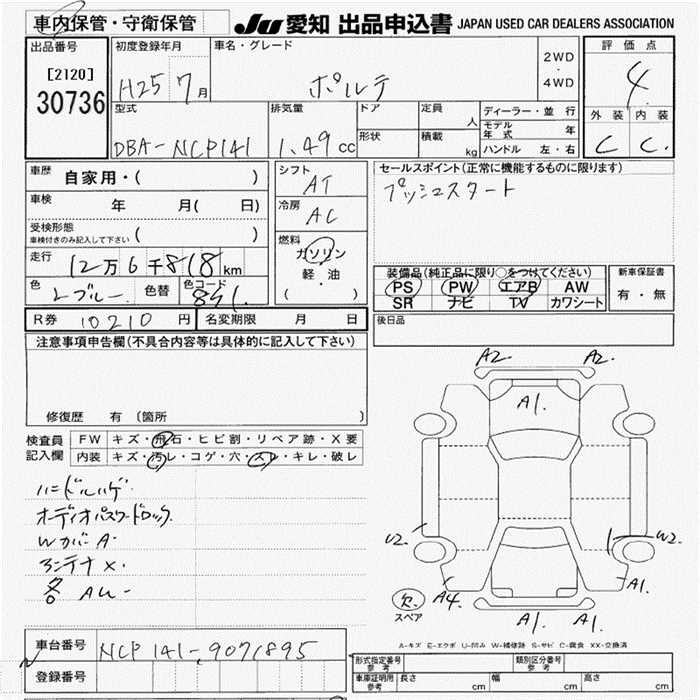 車内保管・守衛保管
JU 愛知 出品申込書 JAPAN USED CAR DEALERS ASSOCIATION
出品番号
[2120]
30736
初度登録年月
H25 7月
車名・グレード
ポルテ
2WD
・
4WD
評価点
4
外装 内装
C C
型式
DBA-NCP141
排気量
1.49cc
ドア
形状
定員
人
積載
kg
ディーラー・並 行
モデル年式 年
ハンドル 左・右
車歴 自家用・( )
車検 年 月( 日)
受検形態
車検付きのみ記入して下さい ( )
走行 12万6千818km
色 Lブルー 色替 色コード 8
シフト
AT
冷房
AC
燃料
ガソリン
軽・油
( )
セールスポイント(正常に機能するものに限ります)
プッシュスタート
装備品(純正品に限り○をつけてください)
PS PW エアB AW
SR ナビ TV カワシート
新車保証書
有・無
R券 10210円 名変期限 月 日
後日品
注意事項申告欄(不具合内容等は具体的に記入して下さい)
修復歴 有 〔箇所 〕
検査員記入欄
FW キズ・飛石・ヒビ割・リペア跡・X要
内装 キズ・汚レ・コゲ・穴・スレ・キレ・破レ
ハンドルハゲ
オーディオパスワードロック
WカバーA
アンテナ×
各 AU-
A2 A2
A1
U2 W2
A4 A1
欠
スペア
A1 A1
A-キズ E-エクボ U-凹み W-補修跡 S-サビ C-腐食 XX-交換済
車台番号 NCP141-9071895
登録番号
形式指定番号
参考
類別区分番号
参考
車庫証明用
参考
長さ cm 幅 cm 高さ cm